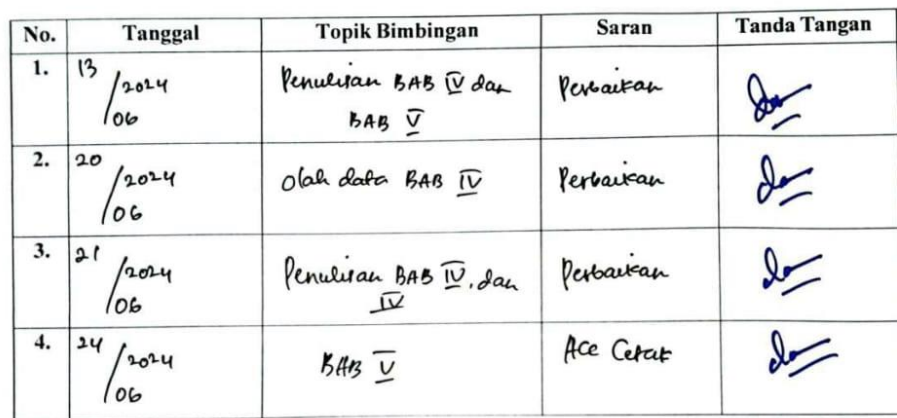 No. Tanggal Topik Bimbingan Saran Tanda Tangan
1. 13/06 2024 Penulisan BAB IV dan Perbaikan
BAB V
2. 20/06 2024 Olah data BAB IV Perbaikan
3. 21/06 2024 Penulisan BAB IV, dan Perbaikan
IV
4. 24/06 2024 BAB V Acc Cetak